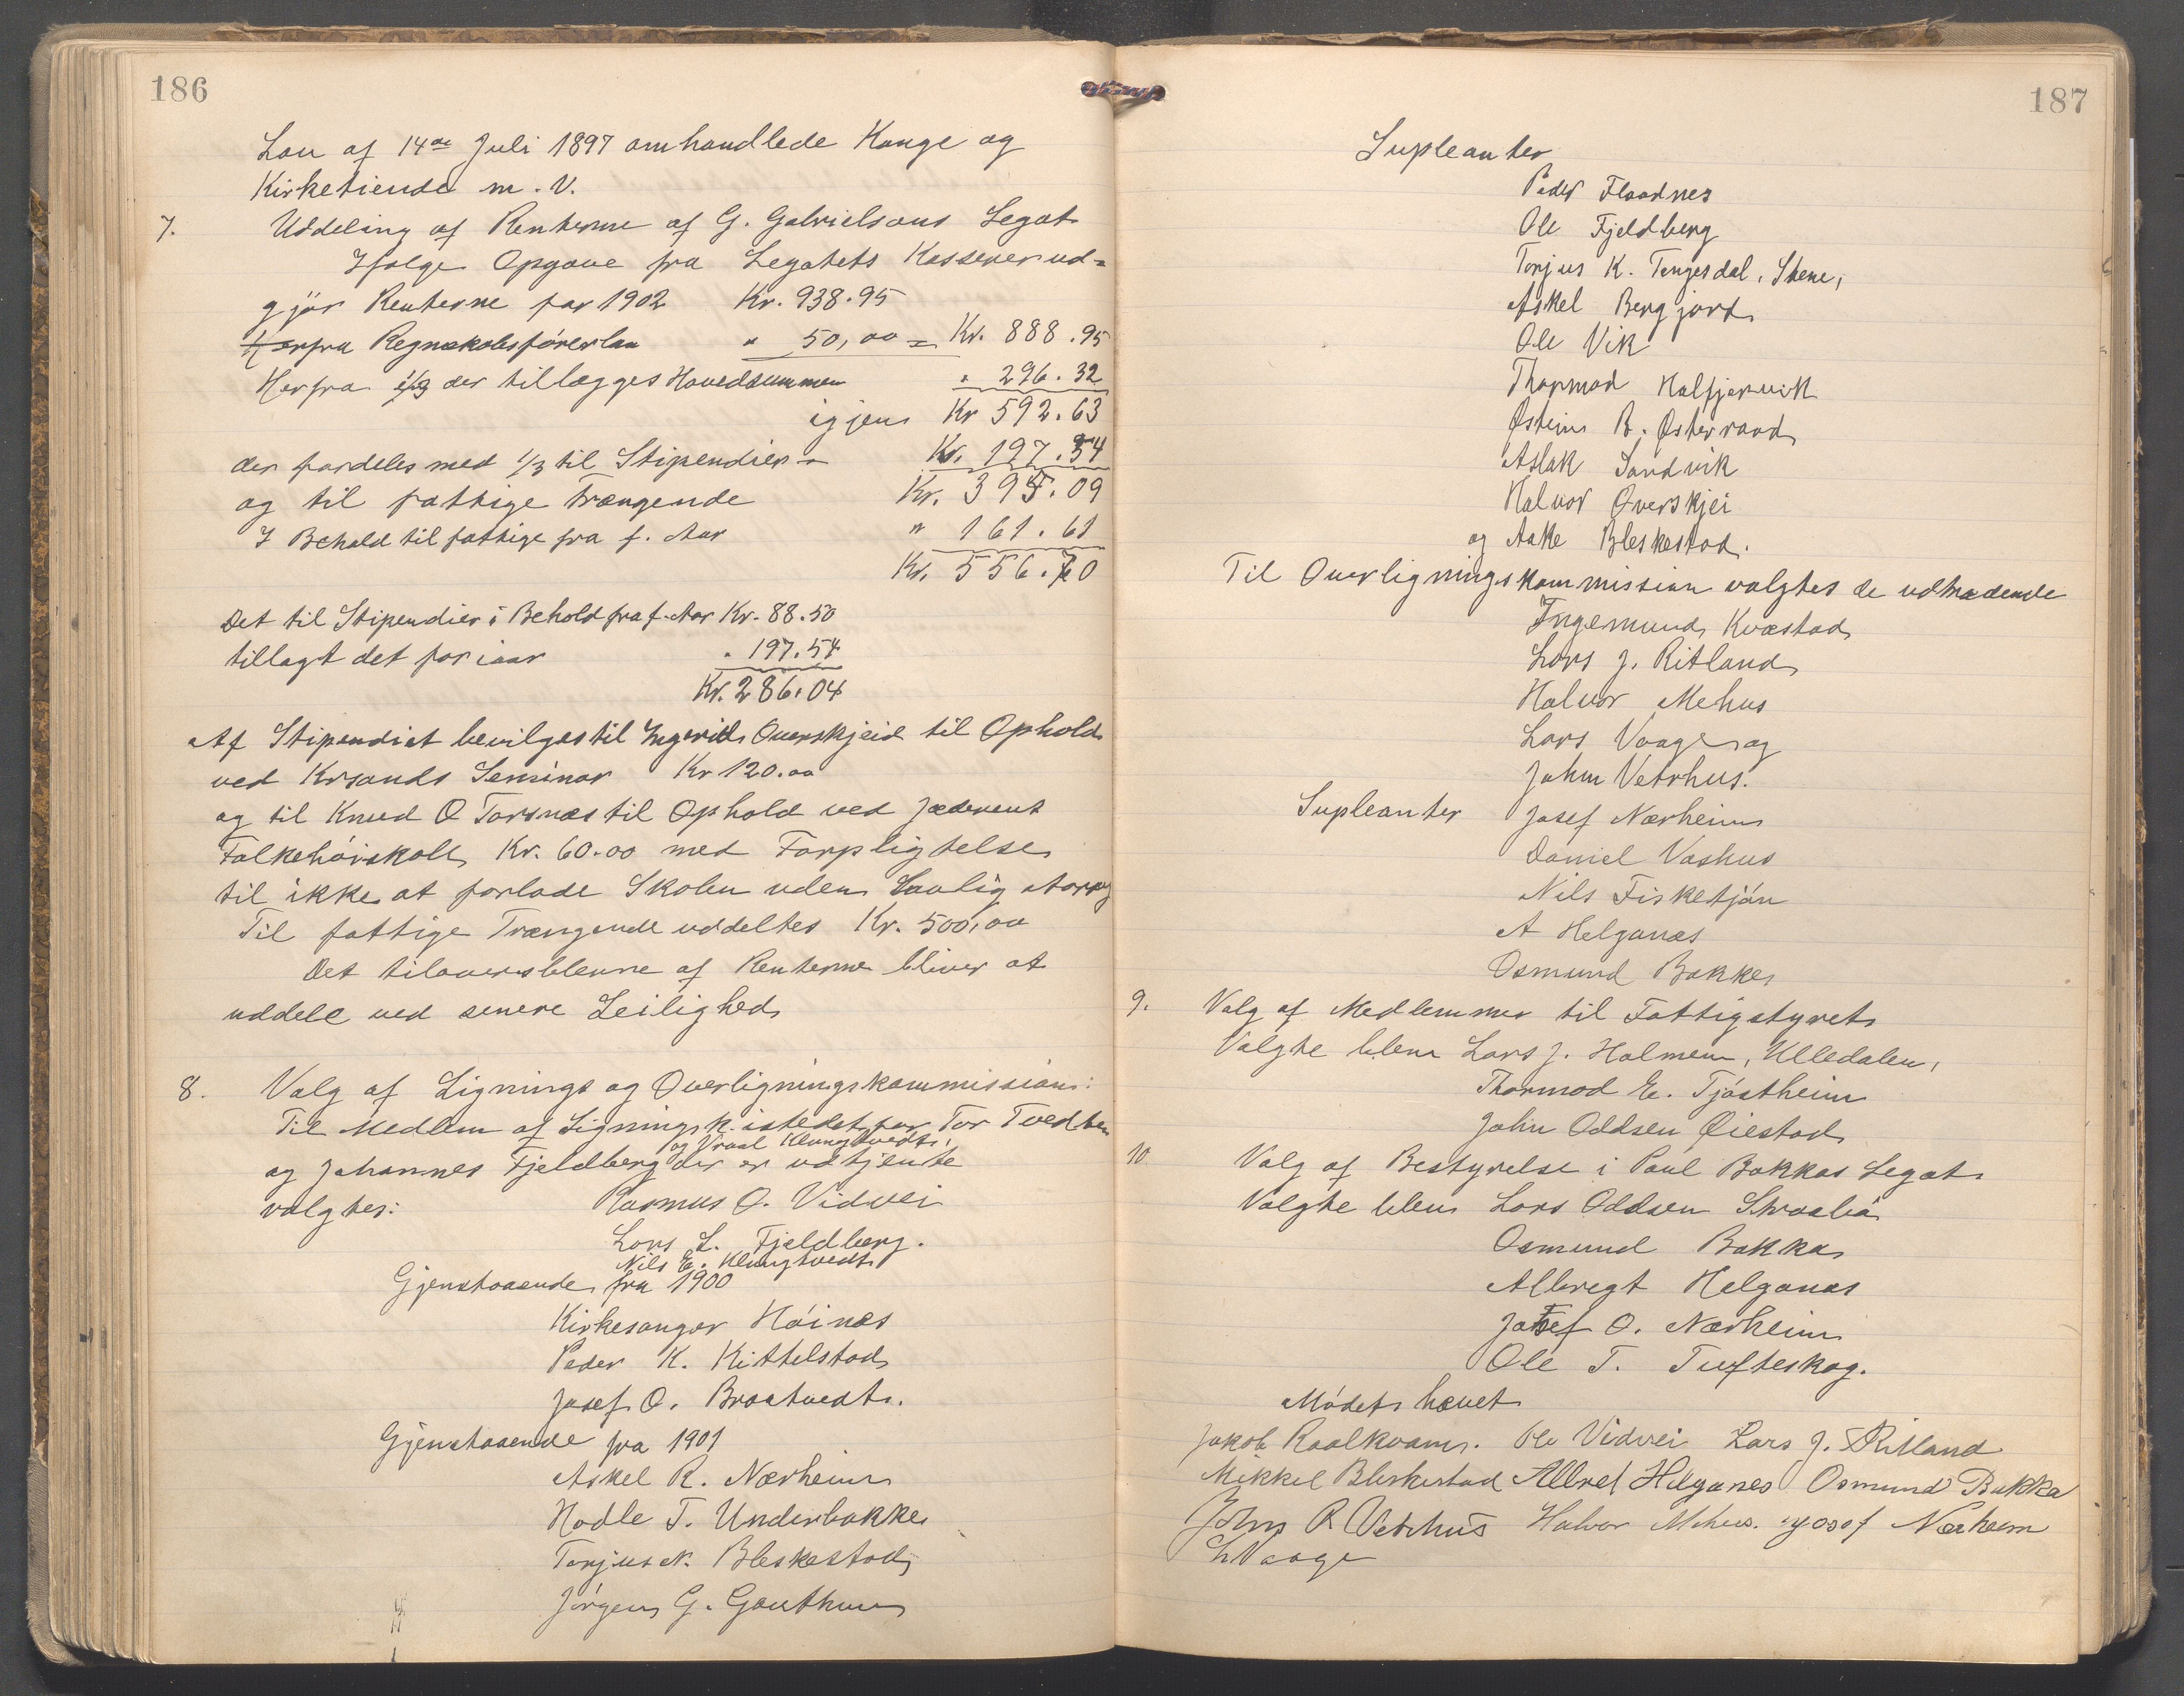 186
Lov af 14de Juli 1897 omhandlede Konge og
Kirketiende m. V.
7. Uddeling af Renterne af G. Gabrielsens Legat
Ifølge Opgave fra Legatets Kasserer ud-
gjør Renterne for 1902 Kr. 938.95
Herfra Regnskabsførerløn " 50,00 = Kr. 888.95
Herfra 1/3 der tillægges Hovedsummen " 296.32
igjen Kr 592.63
der fordeles med 1/3 til Stipendier Kr. 197.54
og til fattige Trængende Kr. 395.09
I Behold til fattige fra f. Aar " 161.61
Kr. 556.70
Det til Stipendier i Behold fra f. Aar Kr. 88.50
tillagt det for iaar " 197.54
Kr. 286.04
Af Stipendiet bevilges til Ingerid Overskjeid til Ophold
ved Krsands Seminar Kr 120.00
og til Knud O Torsnæs til Ophold ved Jæderens
Folkehøiskole Kr. 60.00 med Forpligtelse
til ikke at forlade Skolen uden Lovlig Aarsag
Til fattige Trængende uddeltes Kr. 500,00
Det tiloversblevne af Renterne bliver at
uddele ved senere Leilighed
8. Valg af Lignings og Overligningskommission:
Til Medlem af Ligningsk. istedetfor Tor Tvedten
og Vraal Klungtvedt
og Johannes Fjeldberg der er udtjente
valgtes: Rasmus O. Vidvei
Lars L. Fjeldberg.
Nils E. Klungtvedt
Gjenstaaende fra 1900
Kirkesanger Høinæs
Peder K. Kittelstad
Josef O. Braatvedt.
Gjenstaaende fra 1901
Askel R. Nærheim
Hodle T. Underbakke
Torjus N. Bleskestad
Jørgen G. Gauthun
187
Supleanter
Peder Flaadnes
Ole Fjeldberg
Torjus K. Tengesdal, Stene,
Askel Bergjord
Ole Vik
Thormod Kalfjervik
Østein B. Østerraad
Aslak Sandvik
Halvor Overskjei
og Aake Bleskestad.
Til Overligningskommission valgtes de udtrædende
Ingemund Kvæstad
Lars J. Ritland
Halvor Mehus
Lars Vaage og
John Vetrhus.
Supleanter Josef Nærheim
Daniel Vashus
Nils Fisketjøn
A Helganæs
Osmund Bakke
9. Valg af Medlemmer til Fattigstyret
Valgte blev Lars J. Holmen, Ulledalen,
Thormod E. Tjøstheim
John Oddsen Øiestad
10 Valg af Bestyrelse i Paul Bakkas Legat
Valgte blev Lars Oddsen Straabø
Osmund Bakka
Albregt Helganæs
Josef O. Nærheim
Ole T. Tufteskog.
Mødet hævet
Jakob Raalkvam. Ole Vidvei Lars J. Ritland
Mikkel Bleskestad Albret Helganes Osmund Bakka
John R Vetrhus Halvor Mehus. Josef Nærheim
L Vaage